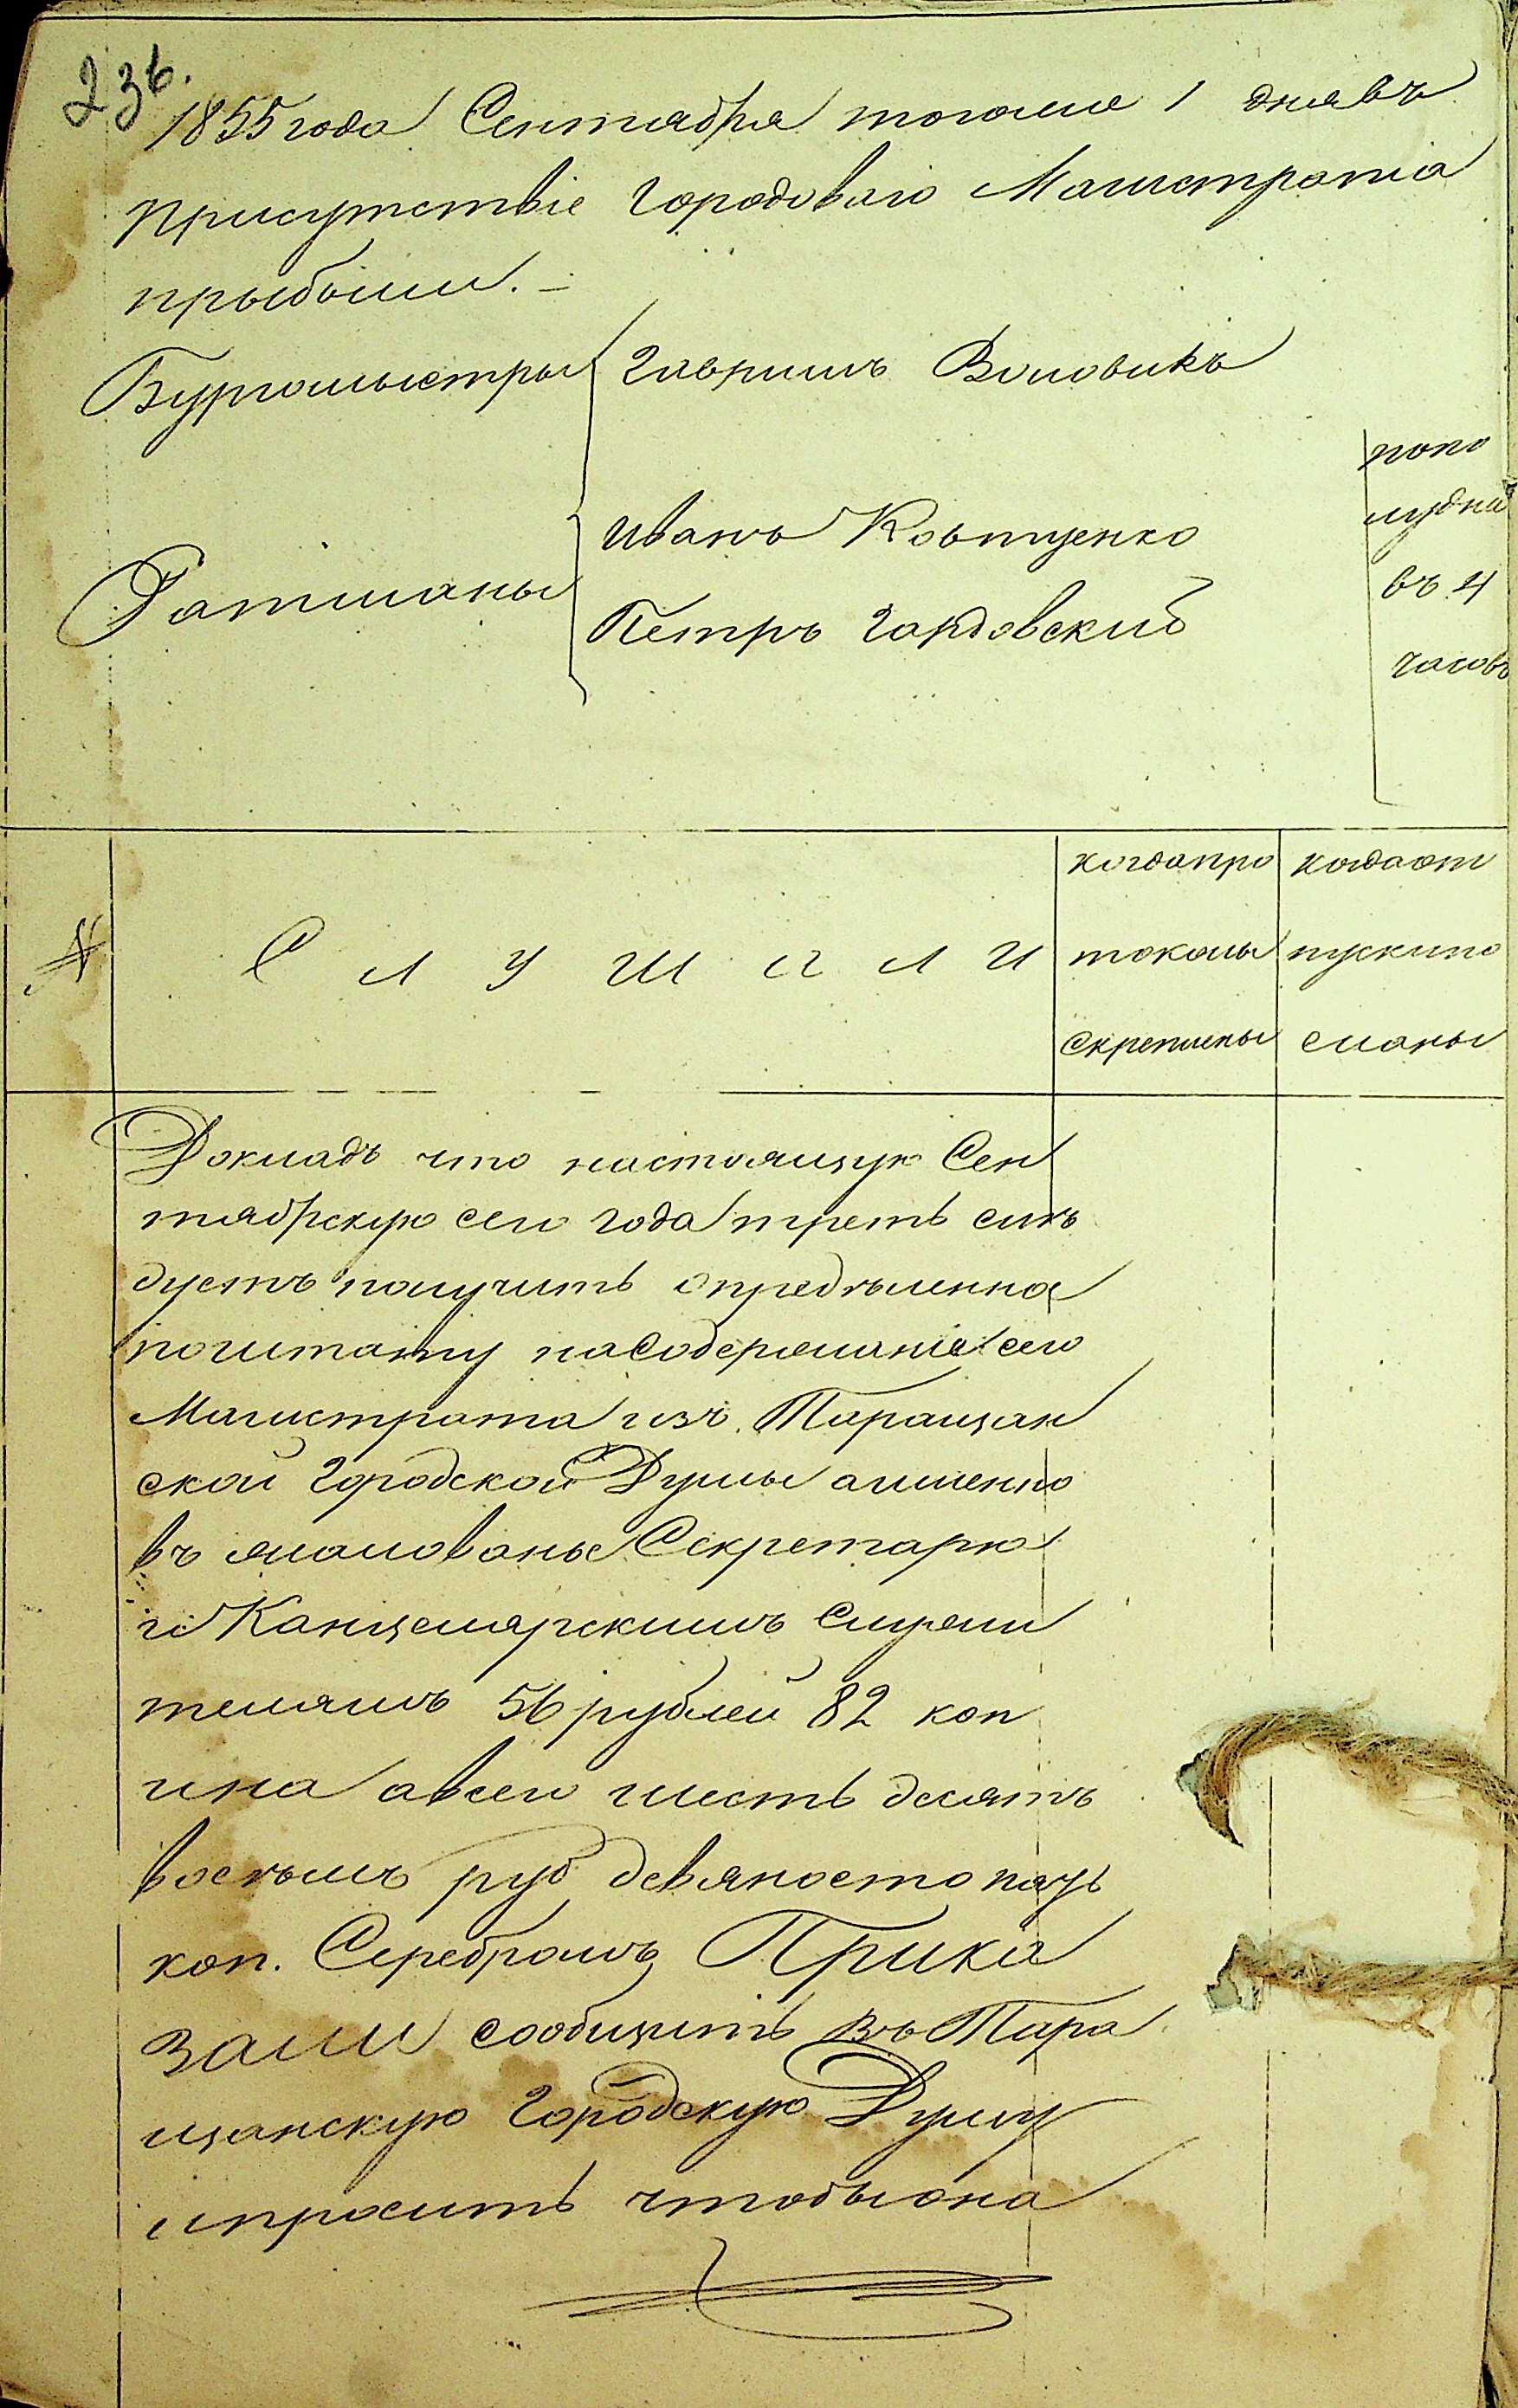 236.
1855 года Сентября тогоже 1 дня въ
присутствіе Городоваго Магистрата
прыбыли. –
Бургомыстры Гаврилъ Воловикъ
попо
лудна
въ 4
часовъ
Иванъ Ковтуенко
Ратманы
Петръ Гардовский
№
Слушали
когда про
токолы
скреплены
когда от
пуски по
сланы
Докладъ что настоящую Сен
тябрскую сего года треть слѣ
дуетъ получить опредѣленна
по штату на Содержаніе сего
Магистрата изъ Таращан
ской Городской Думы а именно
въ жалованье Секретарю
и Канцелярскимъ Служи
телямъ 56 рублей 82 коп
и на а всего шесть десятъ
восѣмъ руб девяносто
коп. Серебромъ Прика
зали сообщить въ Тара
щанскую Городскую Думу
и просить чтобы она